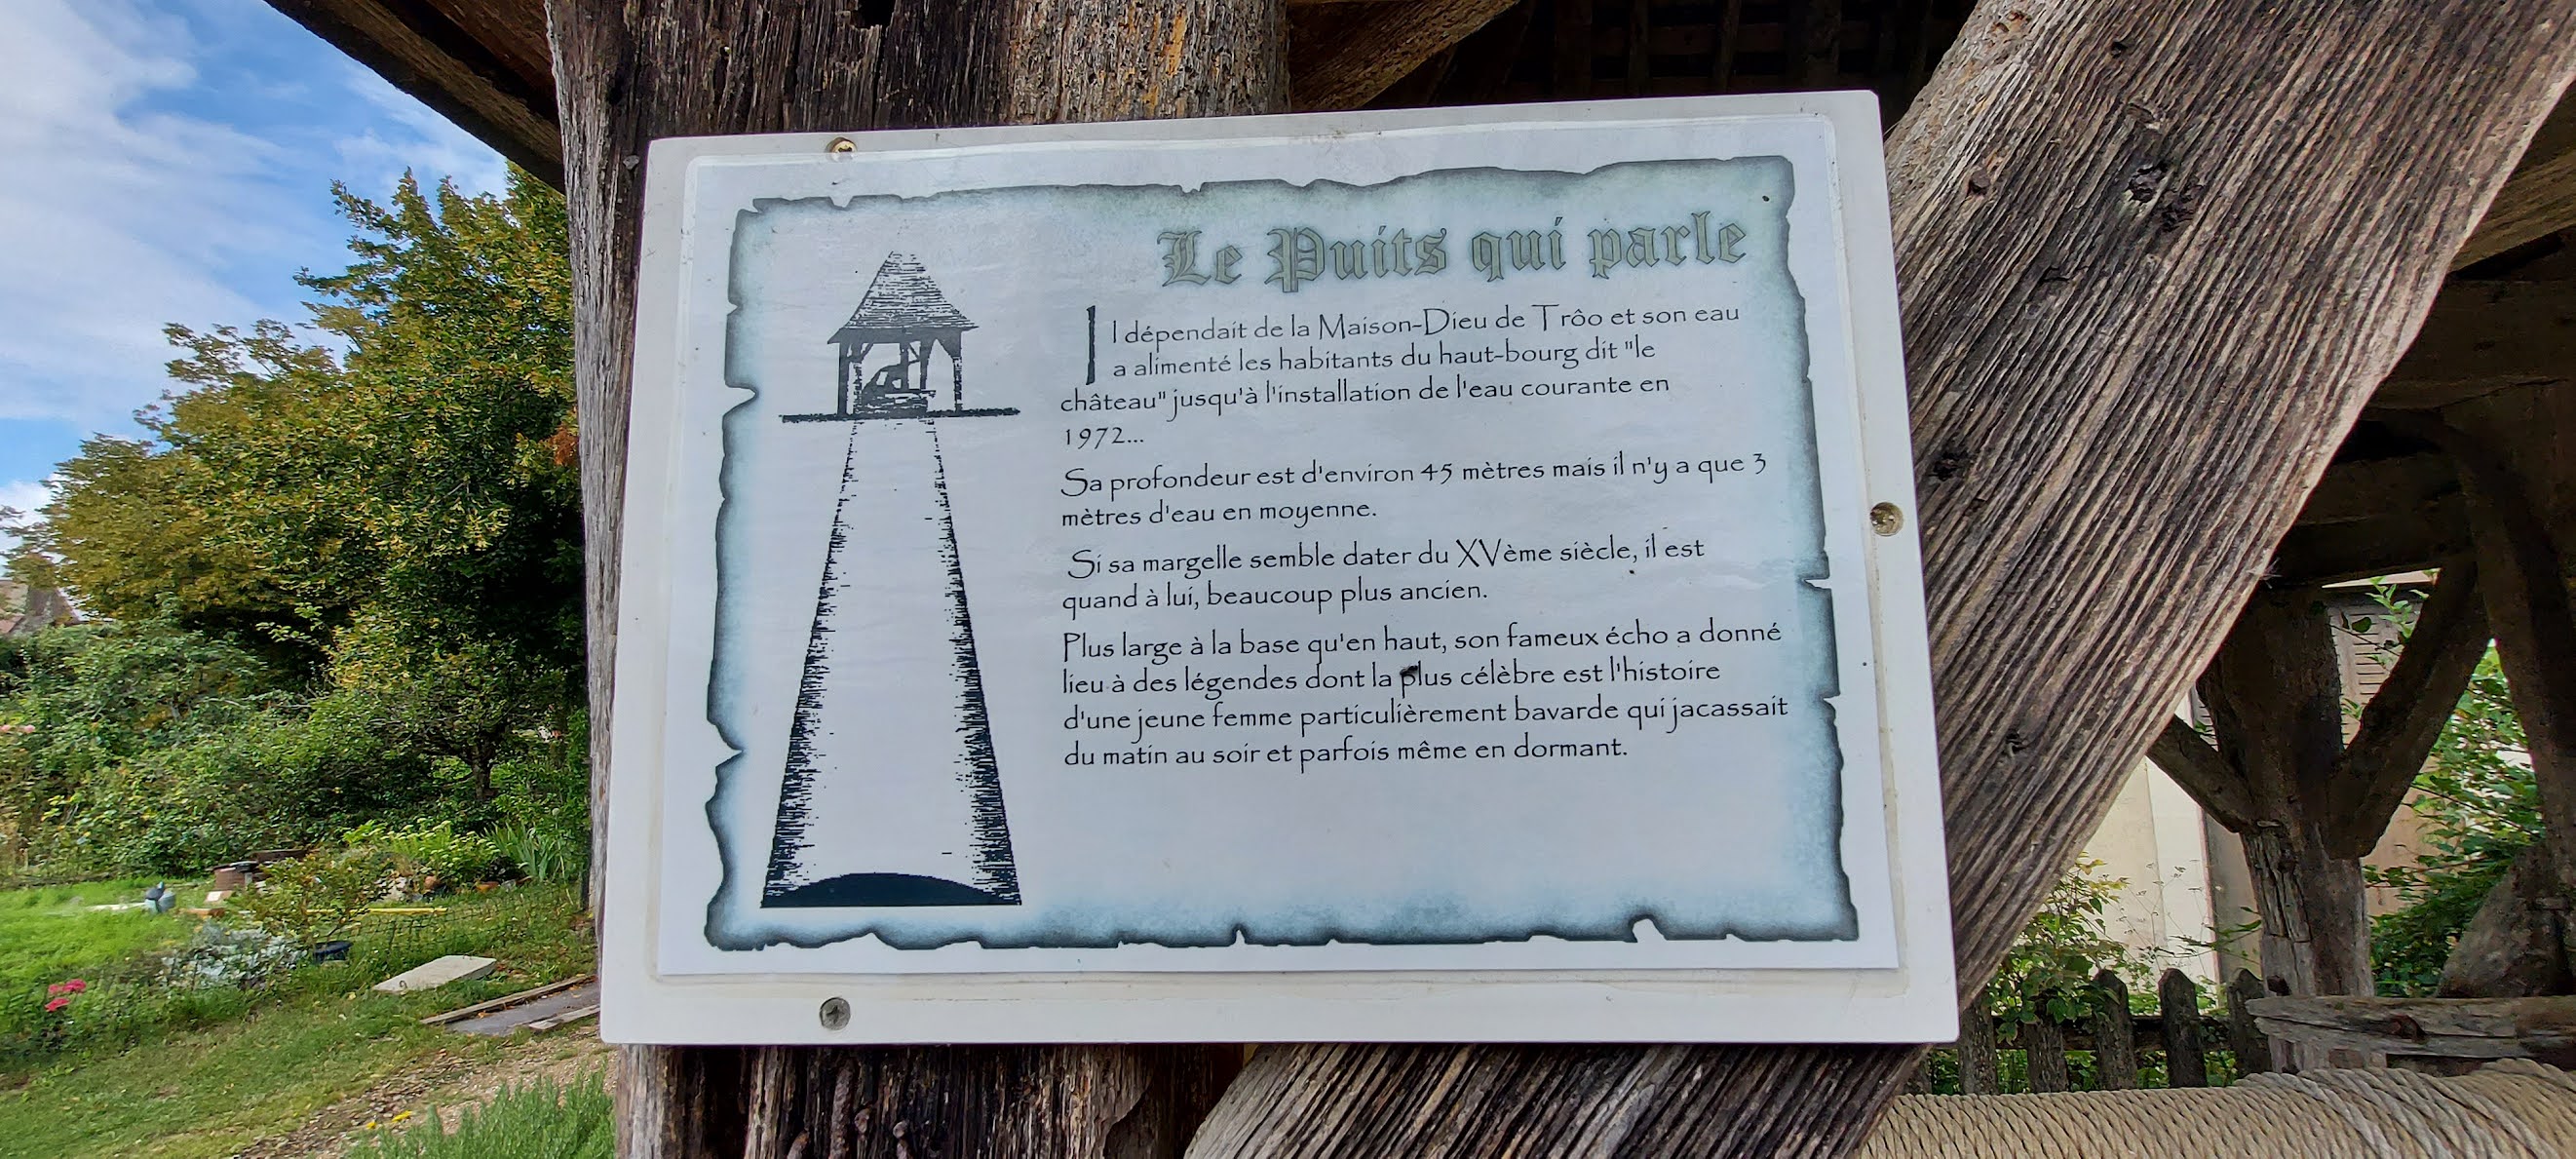 Le Puits qui parle
Il dépendait de la Maison-Dieu de Trôo et son eau
a alimenté les habitants du haut-bourg dit "le
château" jusqu'à l'installation de l'eau courante en
1972...
Sa profondeur est d'environ 45 mètres mais il n'y a que 3
mètres d'eau en moyenne.
Si sa margelle semble dater du XVème siècle, il est
quand à lui, beaucoup plus ancien.
Plus large à la base qu'en haut, son fameux écho a donné
lieu à des légendes dont la plus célèbre est l'histoire
d'une jeune femme particulièrement bavarde qui jacassait
du matin au soir et parfois même en dormant.